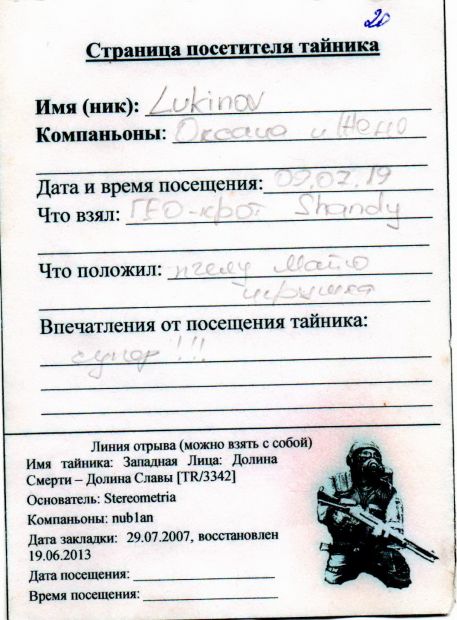 20
Страница посетителя тайника
Имя (ник): Lukinov
Компаньоны: Оксана и Женя
Дата и время посещения: 09.07.19
Что взял: ГЕО-крот Shandy
Что положил: пчелу Майю
игрушка
Впечатления от посещения тайника:
супер!!!
Линия отрыва (можно взять с собой)
Имя тайника: Западная Лица: Долина
Смерти – Долина Славы [TR/3342]
Основатель: Stereometria
Компаньоны: nub1an
Дата закладки: 29.07.2007, восстановлен
19.06.2013
Дата посещения:
Время посещения: